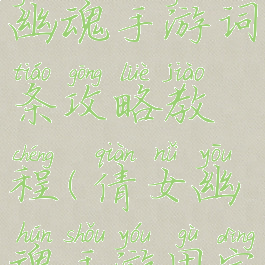 幽魂手游词
tiáo gōng lüè jiào
条攻略教
chéng qiàn nǚ yōu
程(倩女幽
hún shǒu yóu gù dìng
魂手游固定